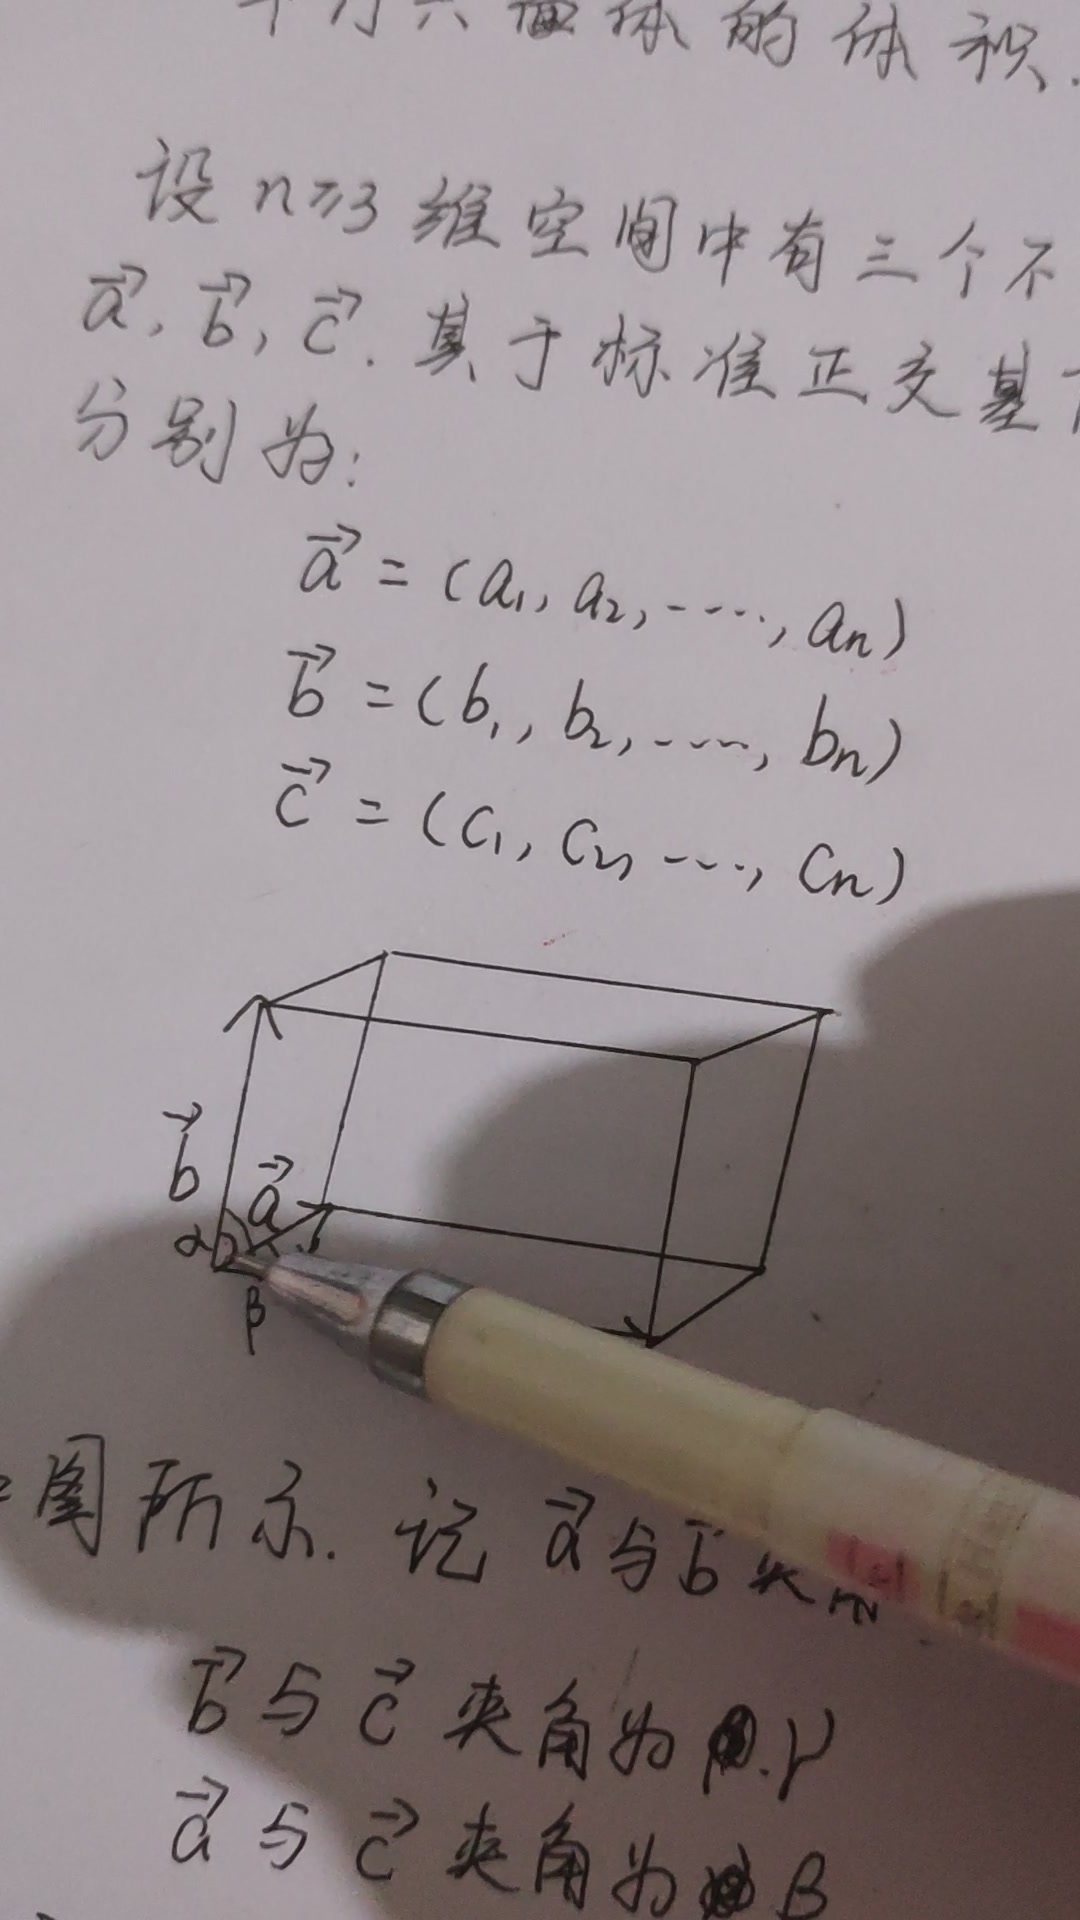 平行六面体的体积.
设 n≥3 维空间中有三个不
a⃗, b⃗, c⃗. 其于标准正交基下
分别为:
a⃗ = (a₁, a₂, ----, aₙ)
b⃗ = (b₁, b₂, ----, bₙ)
c⃗ = (c₁, c₂, ----, cₙ)
b⃗
a⃗
α
β
图所示. 记 a⃗ 与 b⃗ 夹
b⃗ 与 c⃗ 夹角为 γ
a⃗ 与 c⃗ 夹角为 β